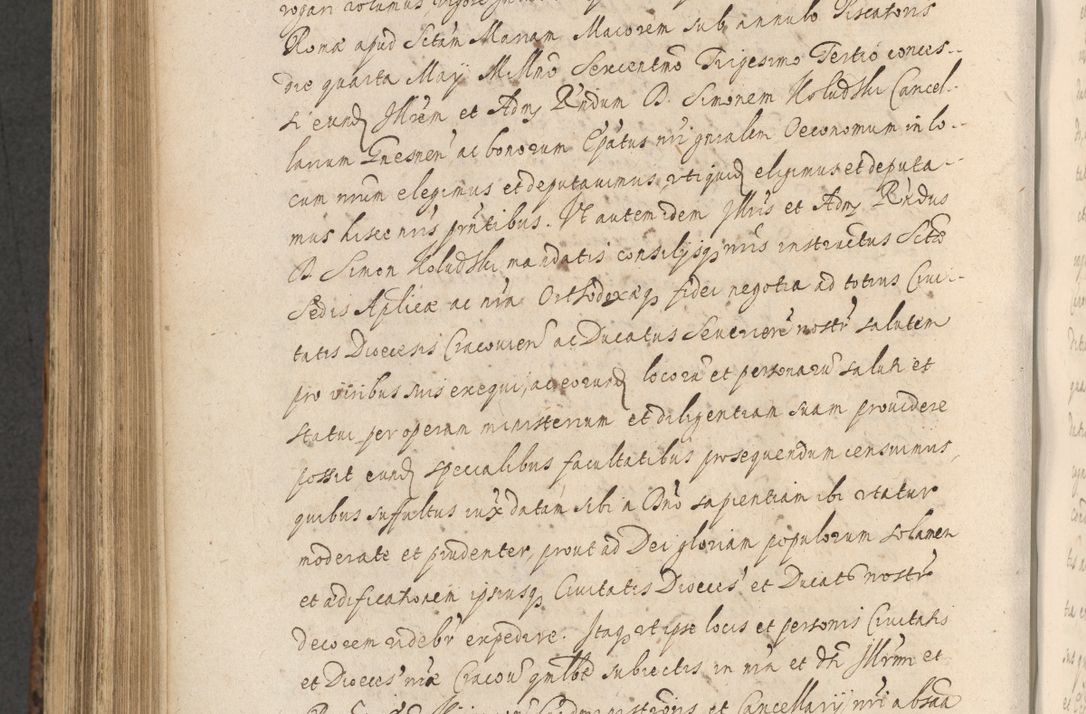 rogari volumus vigore
Romæ apud Sctam Mariam Maiorem sub annulo Piscatoris
die quarta Maÿ Millmo Sexcentmo Trigesimo Tertio conces-
si eund Illrem et Adm Rndum D. Simonem Kołudzki Cancel-
larium Gnesnen ac bonorum Epatus nri gnralem Oeconomum in lo-
cum nrum elegimus et deputauimus, vti quid eligimus et deputa-
mus hisce nris prntibus. Vt autem idem Illris et Adm Rndus
D. Simon Kołudzki mandatis consilijsq nris instructus Sctæ
Sedis Aplicæ ac nra Orthodoxæq fidei negotia ad totius Ciui-
tatis Dioecesis Cracouien ac Ducatus Seuerien nostri salutem
pro viribus suis exequi, ac eorund locoru et personaru saluti et
statui per operam ministerium et diligentiam suam prouidere
possit eund specialibus facultatibus prosequendum censuimus,
quibus suffultus iux datam sibi a Dno sapientiam ibi vtatur
moderate et prudenter, prout ad Dei gloriam populorum solamen
et ædificationem ipsiusq Ciuitatis Dioeces et Ducatus nostri
decorem videbr expedire. Itaq vt ipse locis et personis Ciuitatis
et Dioeces nræ Cracou qmlbt subiectis in nra et dti Illrmi et
et Cancellarij nri absña